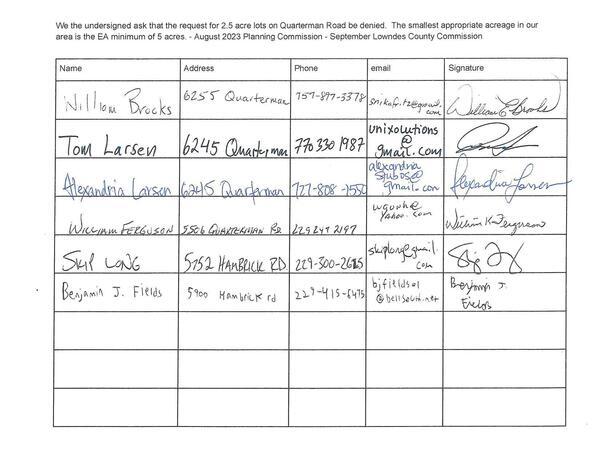 We the undersigned ask that the request for 2.5 acre lots on Quarterman Road be denied. The smallest appropriate acreage in our
area is the EA minimum of 5 acres. - August 2023 Planning Commission - September Lowndes County Commission
Name Address Phone email Signature
William Brooks 6255 Quarterman 757-897-3378 com William E Brooks
Tom Larsen 6245 Quarterman 770 330 1987 unixolutions @ gmail.com
Alexandria Larsen 6245 Quarterman 727-808-1550 alexandria gmail.com Alexandria Larsen
William Ferguson 5506 Quarterman Rd 229 247 2197 yahoo.com William K Ferguson
Skip Long 5752 Hambrick RD 229-300-2615 skiplong@gmail. com
Benjamin J. Fields 5900 Hambrick rd 229-415-6475 bjfields01 @bellsouth.net Benjamin J. Fields